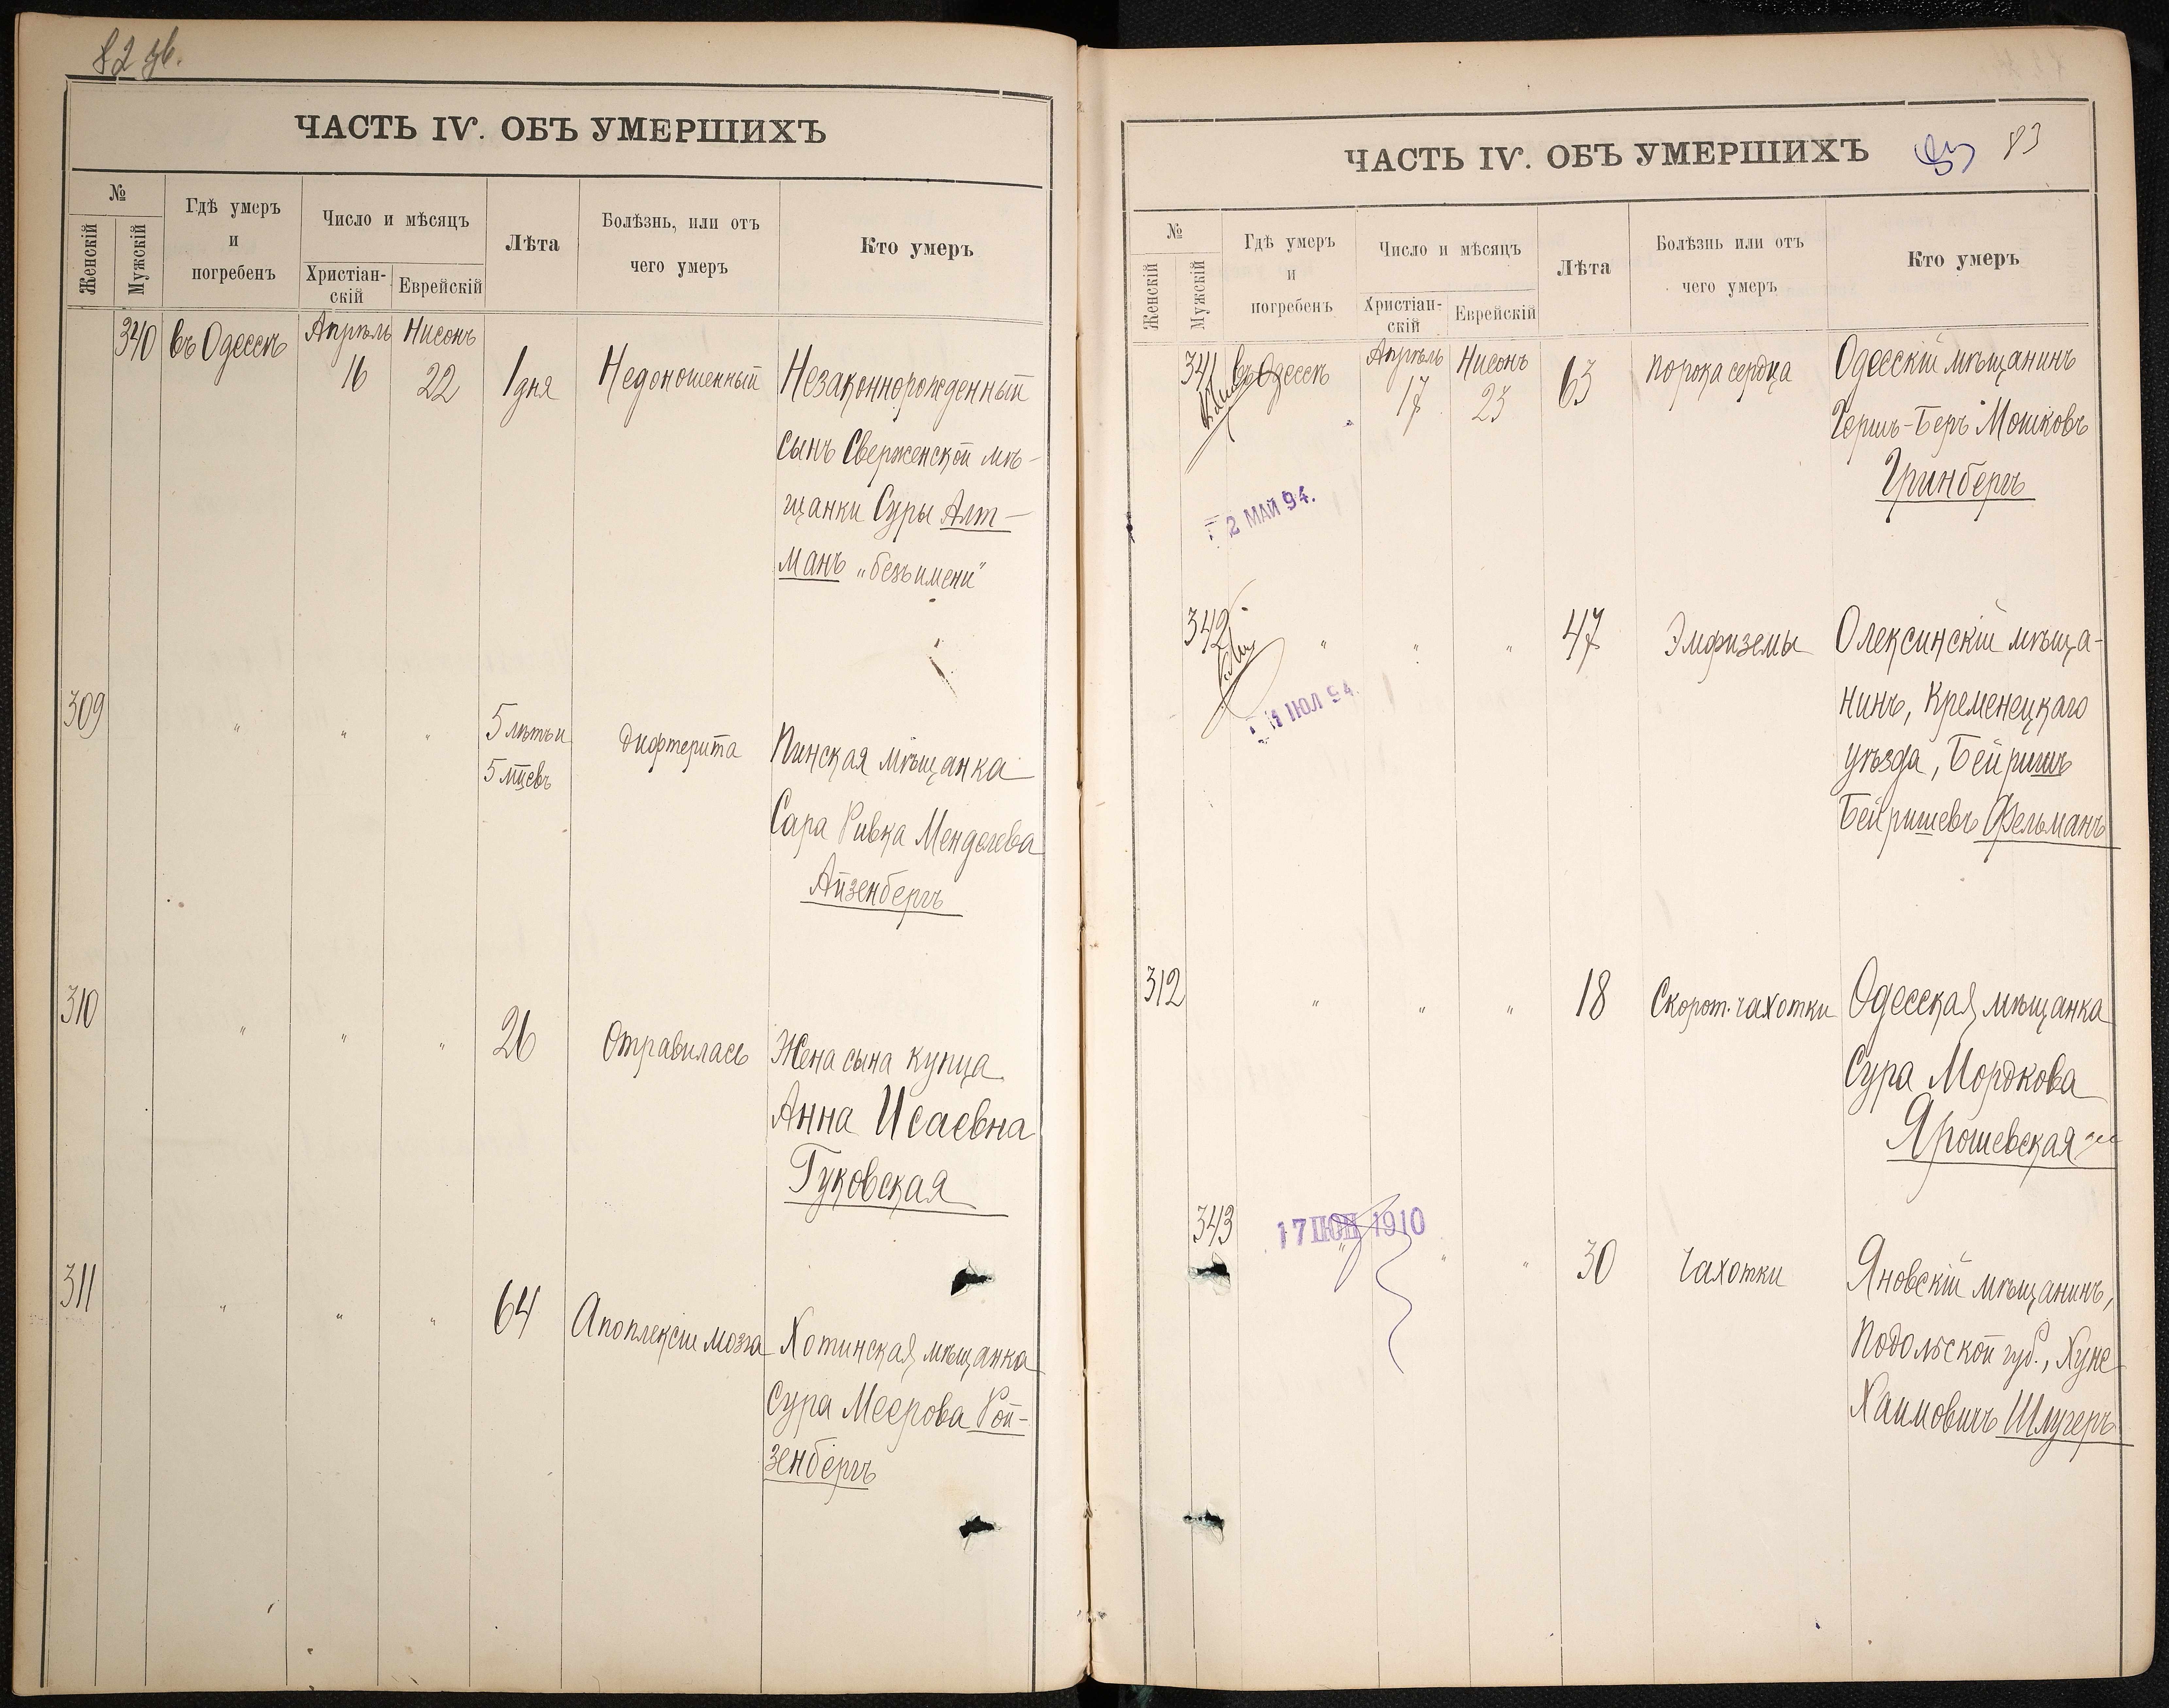 82 об.
ЧАСТЬ IV. ОБЪ УМЕРШИХЪ
№
Женскій
Мужскій
Гдѣ умеръ
и
погребенъ
Число и мѣсяцъ
Христіан-
скій
Еврейскій
Лѣта
Болѣзнь, или отъ
чего умеръ
Кто умеръ
340 въ Одессѣ Апрѣль 16 Нисонъ 22 1 дня Недоношенный Незаконнорожденный
сынъ Сверженской мѣ-
щанки Суры Алт-
манъ „безъ имени"
309 " " " 5 лѣтъ и
5 мцевъ
дифтерита Пинская мѣщанка
Сара Ривка Менделева
Айзенбергъ
310 " " " 26 Отравилась Жена сына купца
Анна Исаевна
Гуковская
311 " " " 64 Апоплексіи мозга Хотинская мѣщанка
Сура Меерова Рой-
зенбергъ
83
ЧАСТЬ IV. ОБЪ УМЕРШИХЪ
№
Женскій
Мужскій
Гдѣ умеръ
и
погребенъ
Число и мѣсяцъ
Христіан-
скій
Еврейскій
Лѣта
Болѣзнь или отъ
чего умеръ
Кто умеръ
341 въ Одессѣ Апрѣль 17 Нисонъ 23 63 порока сердца Одесскій мѣщанинъ
Гершъ-Беръ Мошковъ
Гринбергъ
2 МАЙ 94.
342 " " " 47 Эмфиземы Олексинскій мѣща-
нинъ, Кременецкаго
уѣзда, Бейришъ
Бейришевъ Фельманъ
ІЮЛ 94.
312 " " " 18 Скорот. чахотки Одесская мѣщанка
Сура Мордкова
Ярошевская
343 " " " 30 Чахотки Яновскій мѣщанинъ,
Подольской губ., Хуне
Хаимовичъ Шлугеръ
17 ІЮН 1910